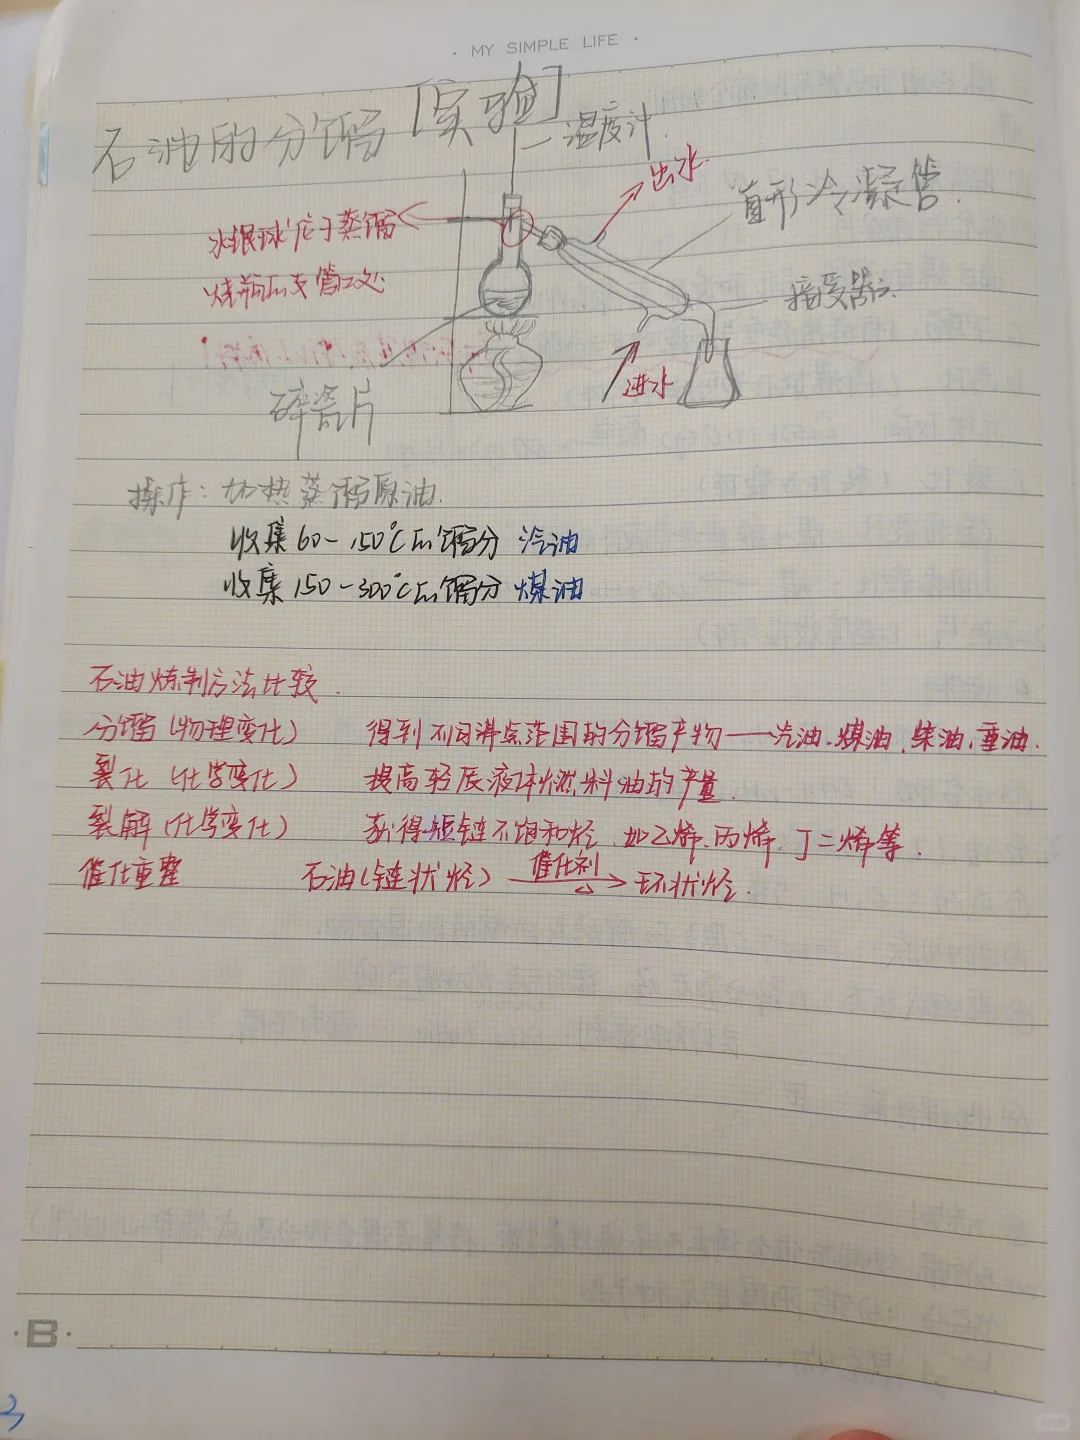 · MY SIMPLE LIFE ·
石油的分馏 [实验]
温度计
出水
直形冷凝管
水银球位于蒸馏
烧瓶的支管口处
接受器
进水
碎瓷片
操作: 加热蒸馏原油.
收集 60-150℃的馏分 汽油
收集 150-300℃的馏分 煤油
石油炼制方法比较.
分馏 (物理变化) 得到不同沸点范围的分馏产物——汽油、煤油、柴油、重油.
裂化 (化学变化) 提高轻质液体燃料油的产量.
裂解 (化学变化) 获得短链不饱和烃. 如乙烯、丙烯、丁二烯等.
催化重整 石油(链状烃) 催化剂 △ → 环状烃.
·B·